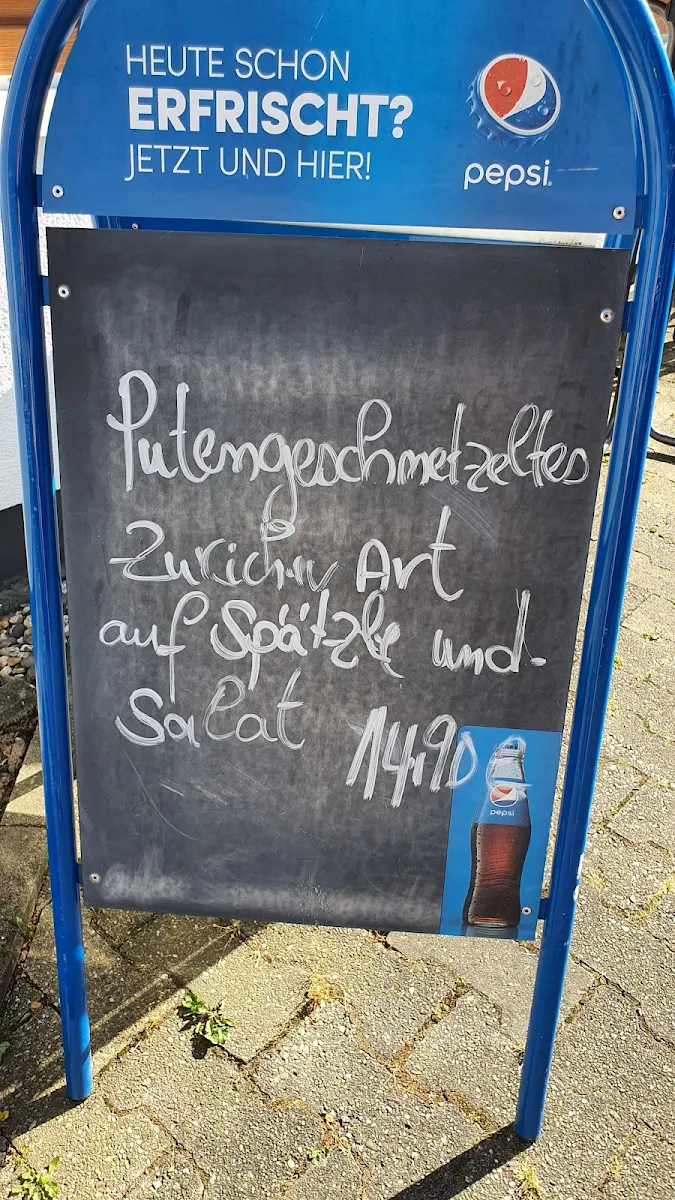 HEUTE SCHON
ERFRISCHT?
JETZT UND HIER!
pepsi
Putengeschmetzeltes
Züricher Art
auf Spätzle und
Salat 14,90
pepsi